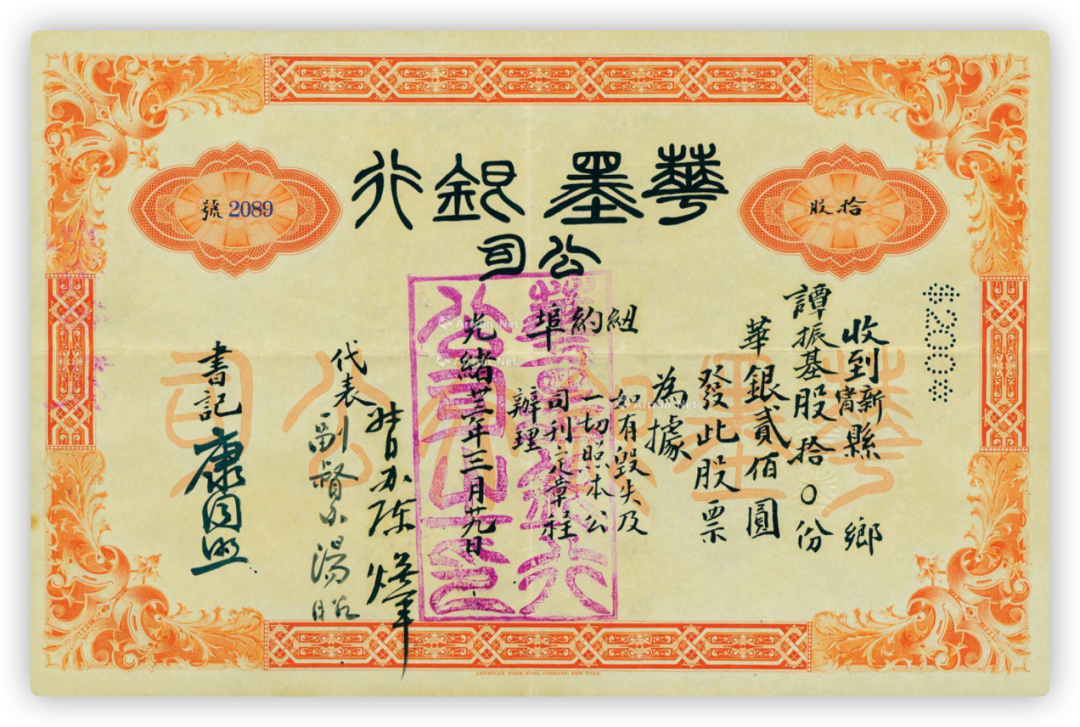 華墨銀行
公司
拾股
號 2089
$200
收到新甯縣 鄉
譚振基股拾〇份
華銀貳佰圓
發此股票
為據
如有毀失及
一切照本公
司刊定章程
辦理
紐約埠
光緒卅三年三月廿九日
代表
副督办湯昭
書記康同
華墨銀行公司
Artron.Net
AMERICAN BANK NOTE COMPANY, NEW YORK.